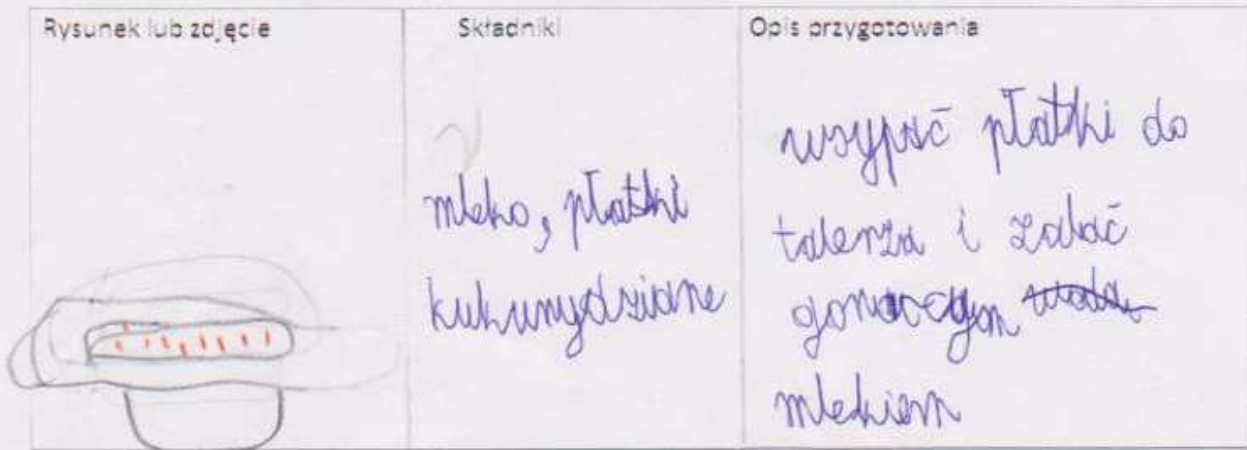 Rysunek lub zdjęcie
Składniki
Opis przygotowania
mleko, płatki
kukurydziane
wsypać płatki do
talerza i zalać
gorącym
mlekiem